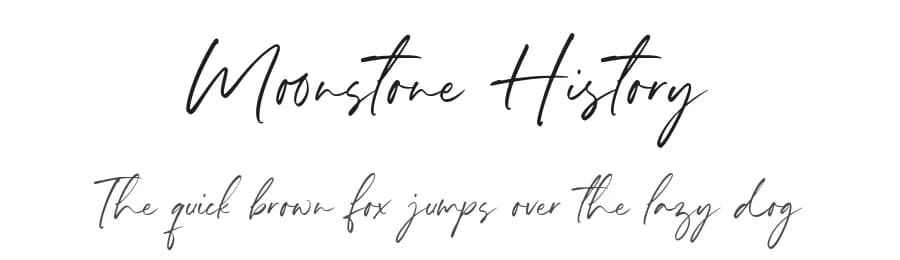 Moonstone History
The quick brown fox jumps over the lazy dog